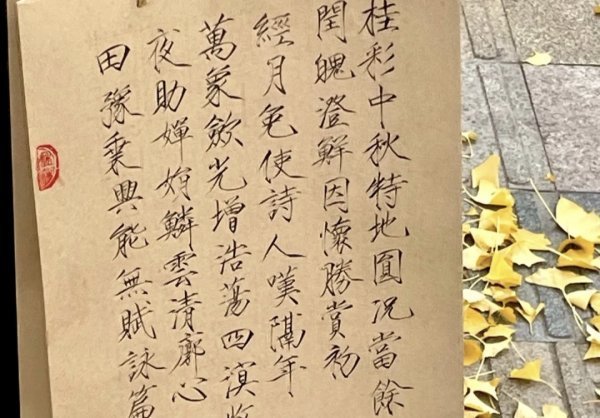 桂彩中秋特地圓況當餘
閏魄澄鮮因懷勝賞初
經月免使詩人嘆隔年
萬象歛光增浩蕩四溟收
夜助嬋娟鱗雲清廓心
田豫乘興能無賦詠篇